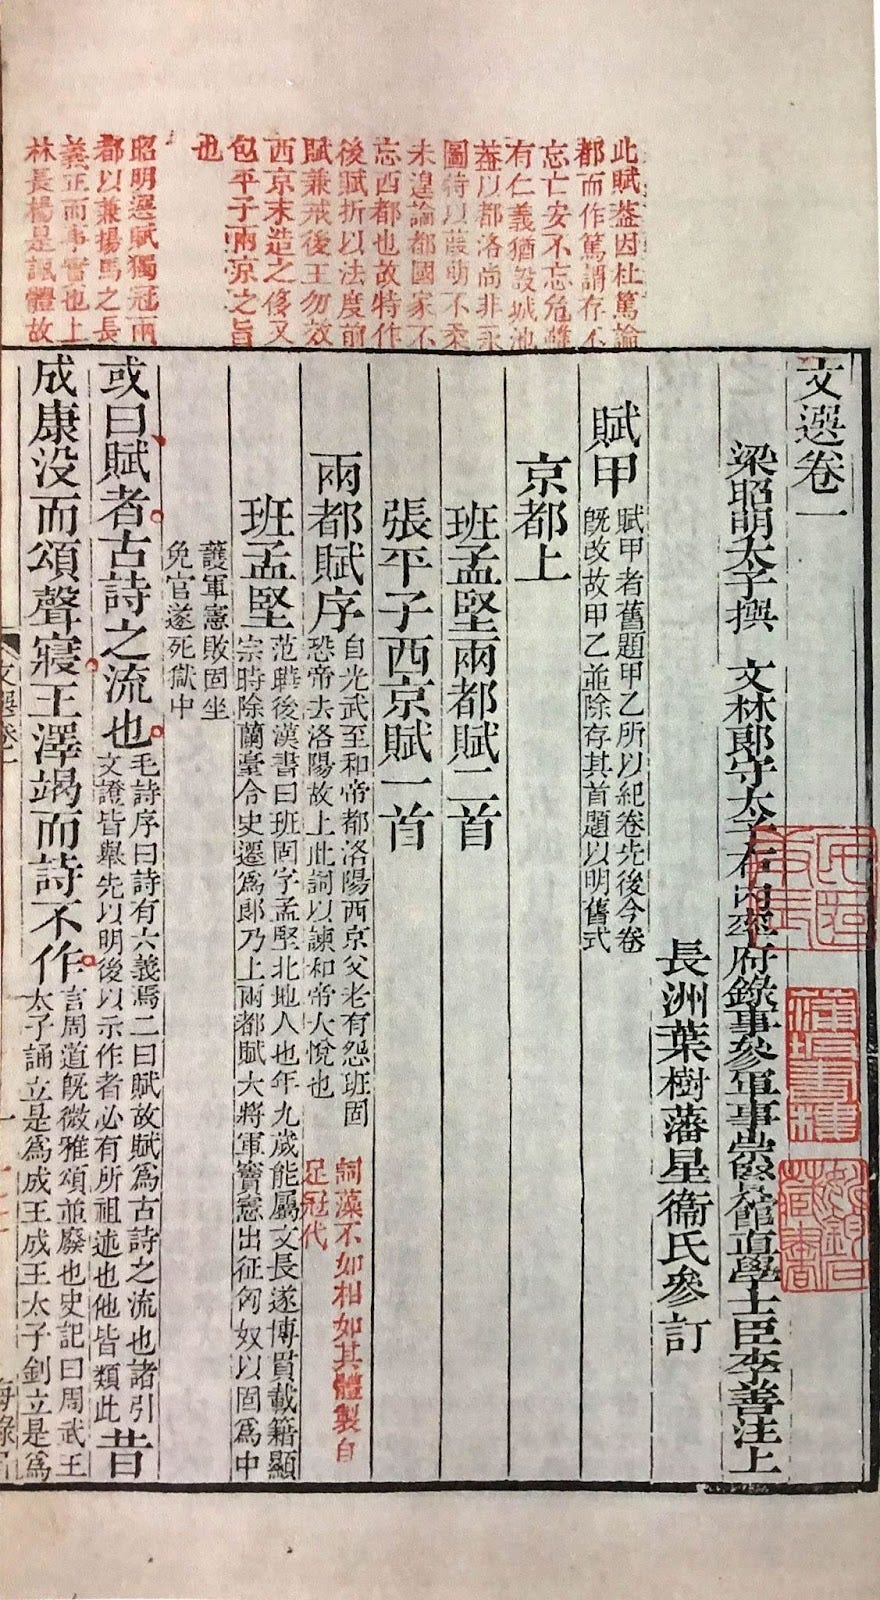 此賦葢因杜篤論
都而作篤謂存不
忘亡安不忘危雖
有仁義猶設城池
葢以都洛尚非永
圖特以葭萌不柔
未遑論都國家不
忘西都也故特作
後賦折以法度前
賦兼戒後王勿效
西京末造之侈又
包平子兩京之旨
也
昭明選賦獨冠兩
都以兼揚馬之長
義正而事實也上
林長楊是諷體故
文選卷一
梁昭明太子撰　文林郎守太子右内率府錄事參軍事崇賢館直學士臣李善注上
長洲葉樹藩星衞氏參訂
賦甲
賦甲者舊題甲乙所以紀卷先後今卷
旣改故甲乙並除存其首題以明舊式
京都上
班孟堅兩都賦二首
張平子西京賦一首
兩都賦序
自光武至和帝都洛陽西京父老有怨班固
恐帝去洛陽故上此詞以諫和帝大悅也
詞藻不如相如其體製自
足冠代
班孟堅
范曄後漢書曰班固字孟堅北地人也年九歲能屬文長遂博貫載籍顯
宗時除蘭臺令史遷爲郎乃上兩都賦大將軍竇憲出征匈奴以固爲中
護軍憲敗固坐
免官遂死獄中
或曰賦者古詩之流也
毛詩序曰詩有六義焉二曰賦故賦爲古詩之流也諸引
文證皆舉先以明後以示作者必有所祖述也他皆類此
昔
成康没而頌聲寢王澤竭而詩不作
言周道旣微雅頌並廢也史記曰周武王
太子誦立是爲成王成王太子釗立是爲
文選卷一
一